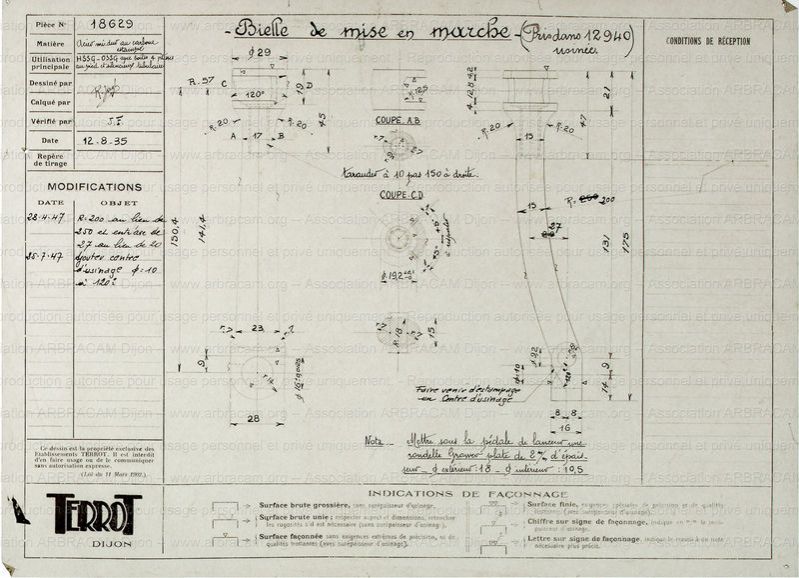 Pièce N° 18629
Matière Acier mi-dur au carbone estampé
Utilisation principale
Dessiné par
Calqué par
Vérifié par J.F.
Date 12-8-35
Repère de tirage
MODIFICATIONS
DATE OBJET
28-4-47 R=200 au lieu de
250 et entr'axe de
27 au lieu de 20
25-7-47 Ajouter centre
d'usinage ϕ=10
à 120°
Ce dessin est la propriété exclusive des
Établissements TERROT. Il est interdit
d'en faire usage ou de le communiquer
sans autorisation expresse.
(Loi du 11 Mars 1902.)
TERROT
DIJON
- Bielle de mise en marche - (Pris dans 12940
usinée.
CONDITIONS DE RÉCEPTION
ϕ 29
R. 57
C
120°
19
D
45
R=20
R=20
A 17 B
COUPE.A.B
Tarauder à 10 pas 150 à droite.
COUPE.C.D
150,4
141,4
ϕ 19,2
R=18
15
23
9
28
21
47
R=20
R=20
15
15
R= 250 200
27
131
175
ϕ 10
14
9
8 8
16
Faire venir d'estampage
un Centre d'usinage
Nota _ Mettre sous la pédale de lanceur une
rondelle Grower plate de 2 m/m d'épais
seur _ ϕ extérieur : 18 _ ϕ intérieur : 10,5
INDICATIONS DE FAÇONNAGE
Surface brute grossière, sans surépaisseur d'usinage.
Surface brute unie; respecter aspect et dimensions, retoucher
les rugosités s'il est nécessaire (sans surépaisseur d'usinage).
Surface façonnée sans exigences extrêmes de précision, et de
qualités frottantes (avec surépaisseur d'usinage).
Surface finie, exigences spéciales de précision et de qualités
frottantes (avec surépaisseur d'usinage).
Chiffre sur signe de façonnage, indique en
Lettre sur signe de façonnage, indique le renvoi à une note
nécessaire plus précise.
Reproduction autorisée pour usage personnel et privé uniquement
www.arbracam.org – Association ARBRACAM Dijon